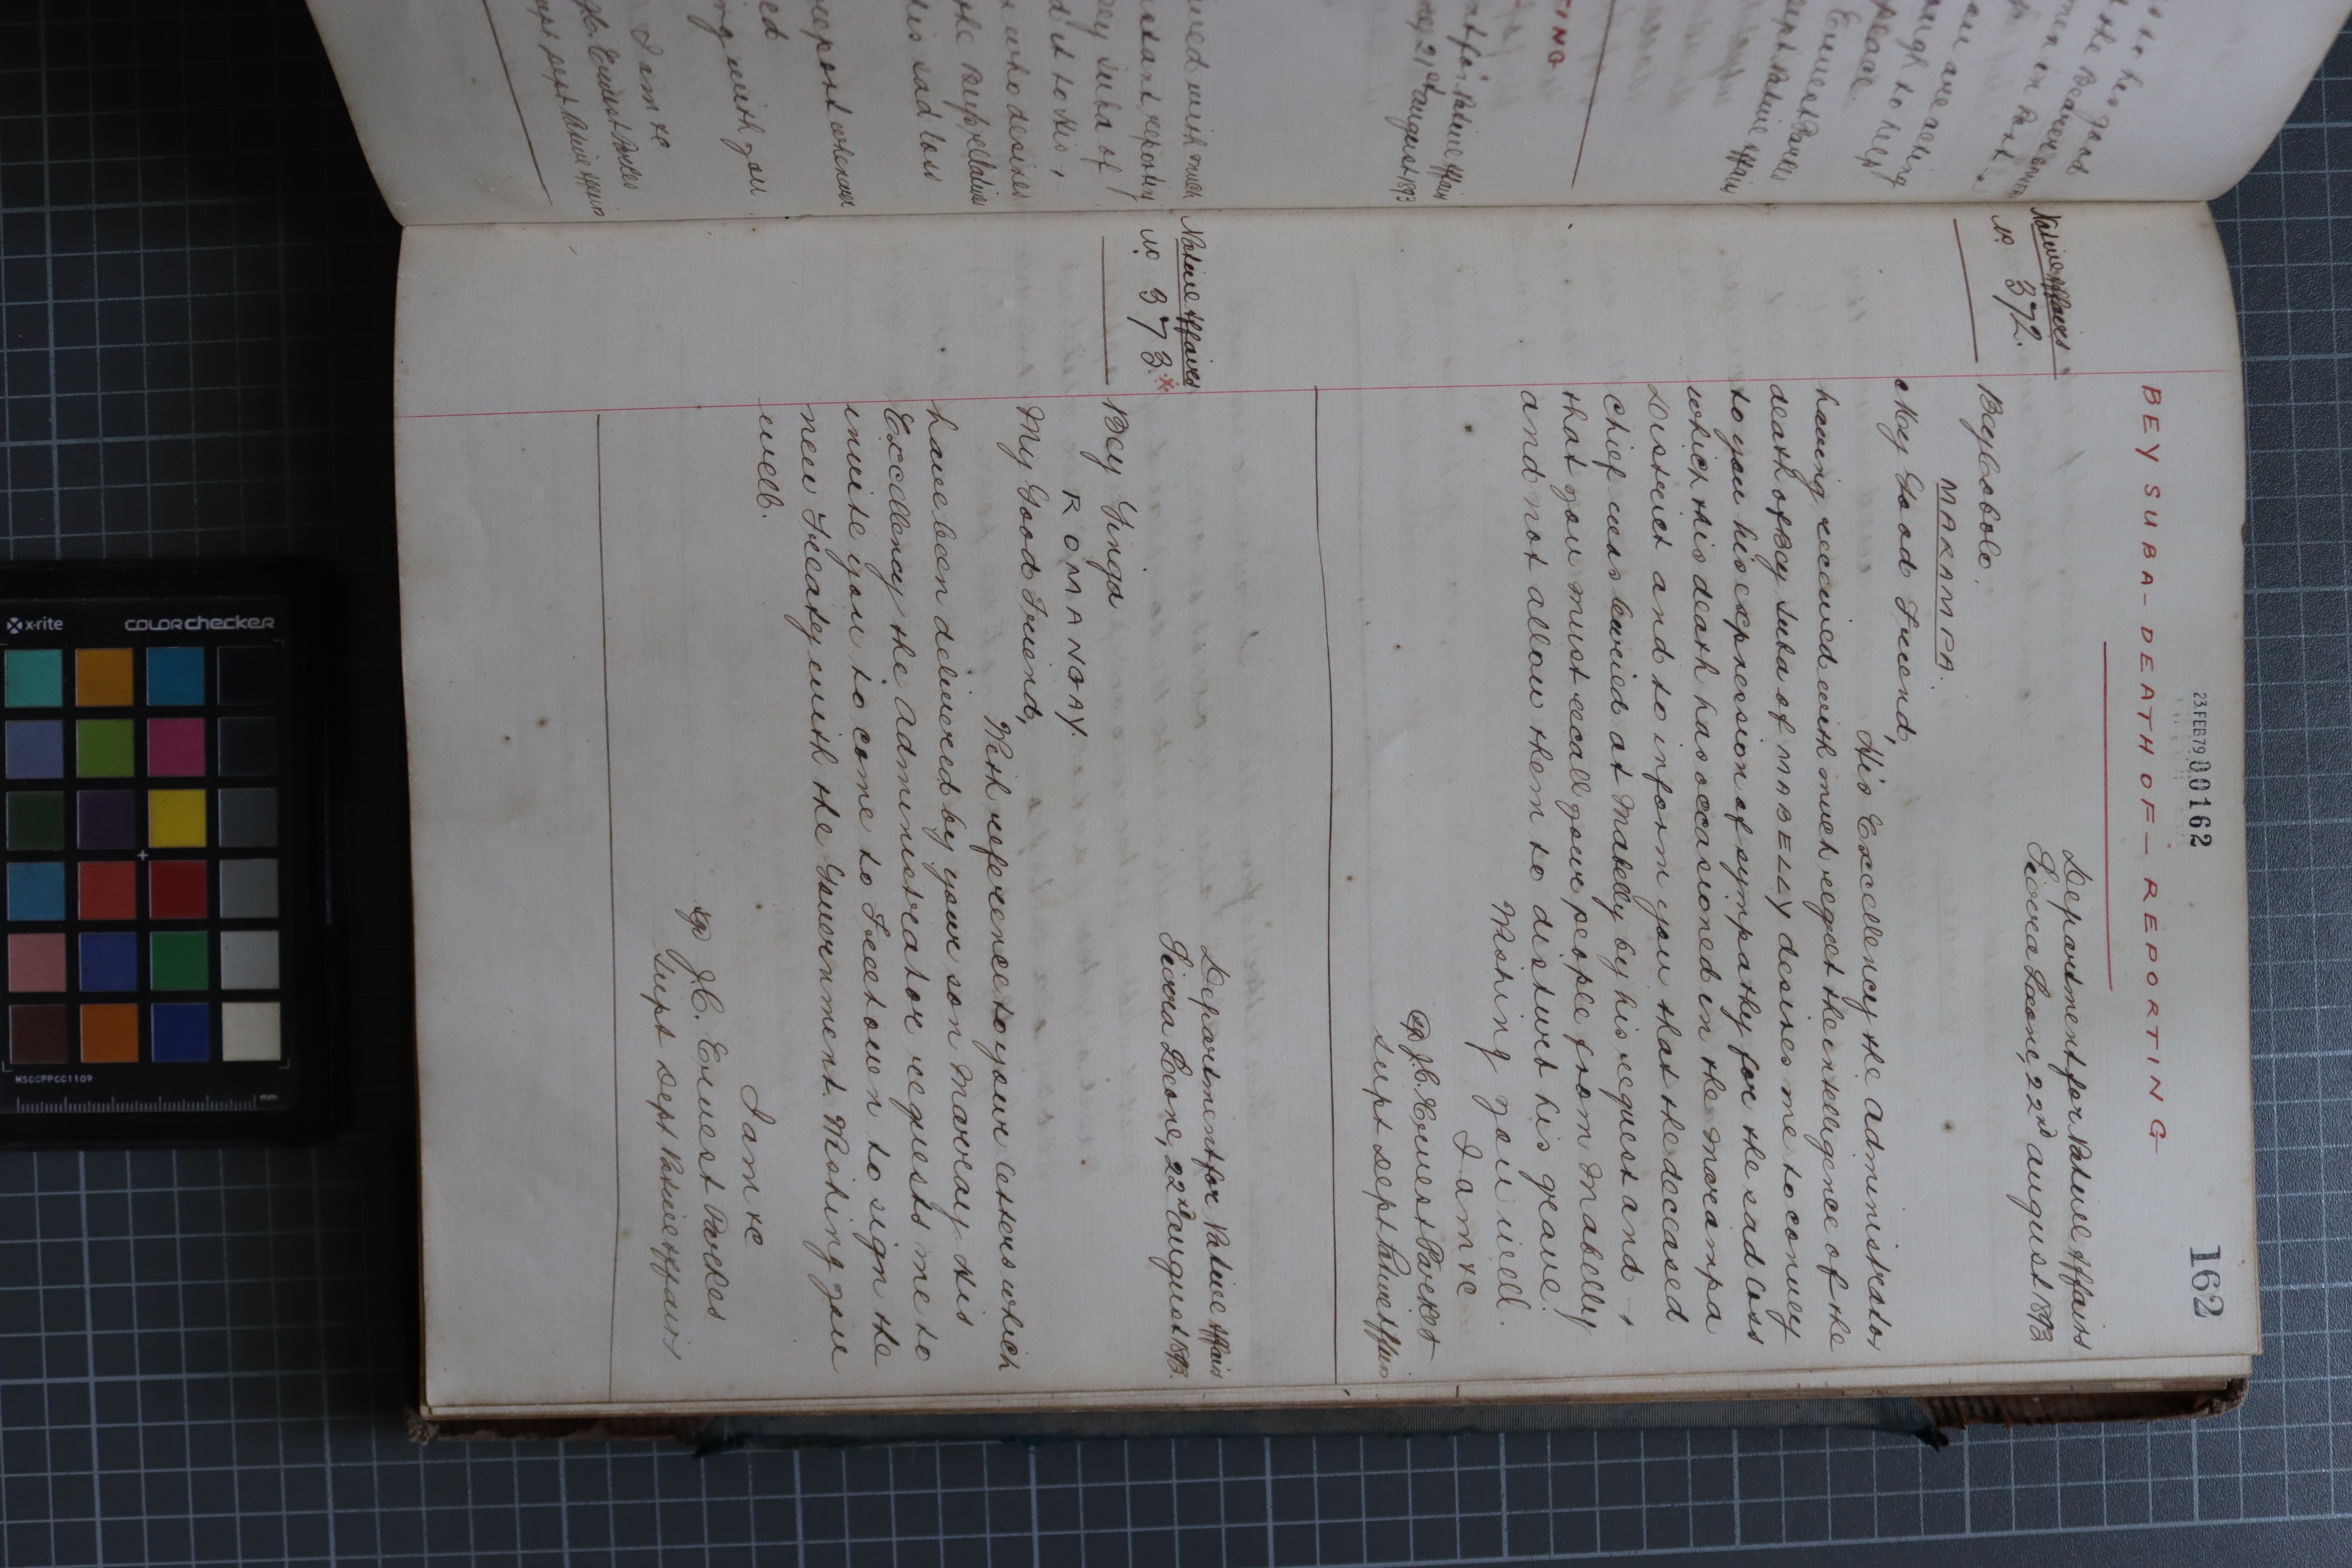 23 FEB 79 00162
162
BEY SUBA - DEATH OF - REPORTING
Native Affairs
No. 372.
Department for Native Affairs
Sierra Leone, 22nd August 1893
Bey Cobolo.
MARAMPA.
My Good Friend,
His Excellency the Administrator
having received with much regret the intelligence of the
death of Bey Suba of MABELLY desires me to convey
to you his expression of sympathy for the sad loss
which this death has occasioned in the Marampa
District and to inform you that the deceased
chief was buried at Mabelly by his request and +
that you must recall your people from Mabelly
and not allow them to disturb his grave.
Wishing you well.
I am &c
sgd J.C. Ernest Parkes
Supt Dept Native Affairs
Native Affairs
No. 373. x
Department for Native Affairs
Sierra Leone, 22nd August 1893.
Bey Yinga
ROMANGAY.
My Good Friend,
With reference to your letters which
have been delivered by your son Morray His
Excellency the Administrator requests me to
invite you to come to Freetown to sign the
new Treaty with the Government. Wishing you
well.
I am &c
sgd J.C. Ernest Parkes
Supt Dept Native Affairs
x-rite
colorchecker
MSCCPPCC1109
mm